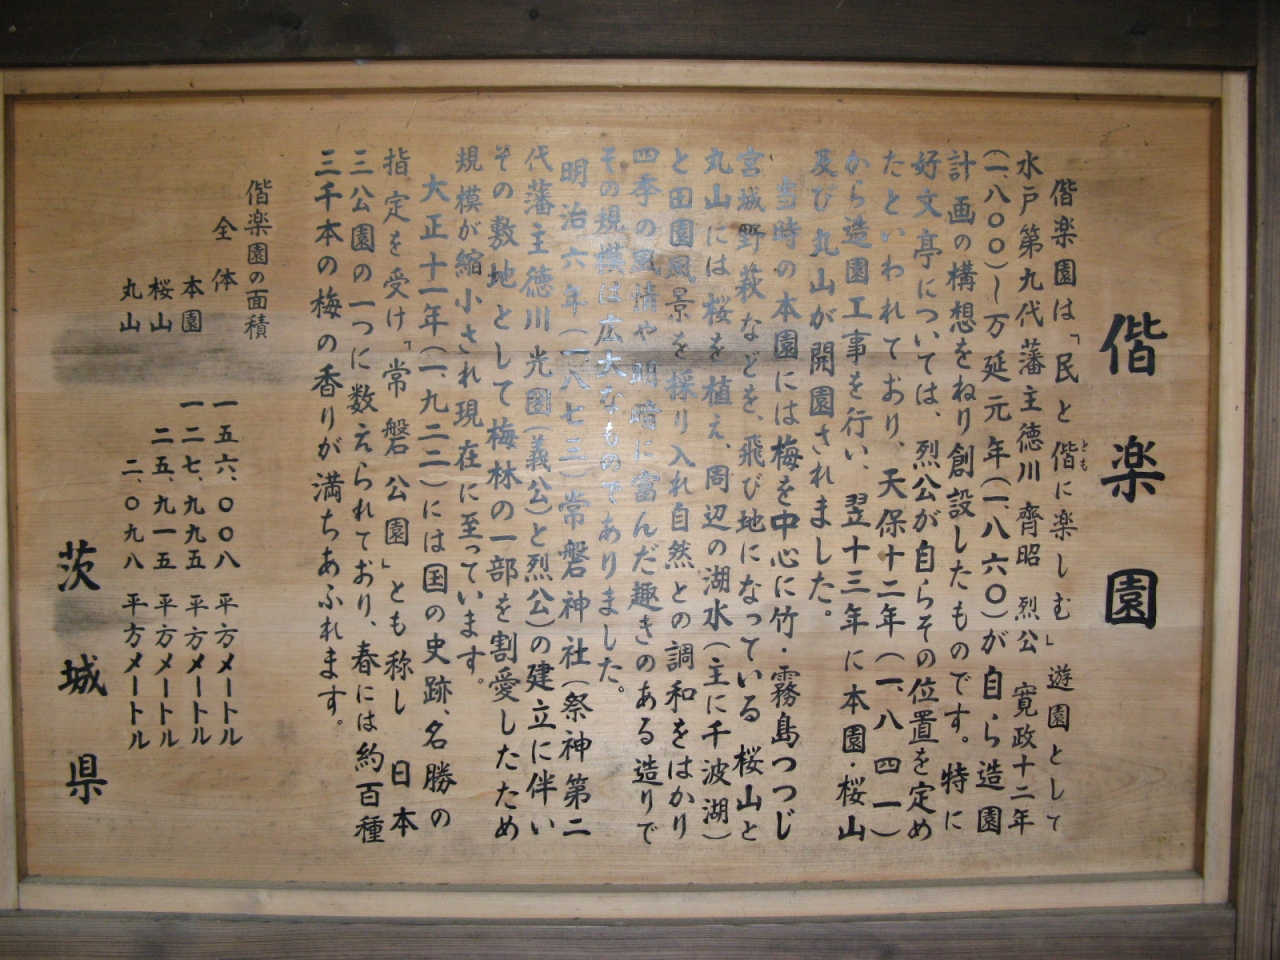 偕楽園
偕楽園は「民と偕に楽しむ」遊園として
とも
水戸第九代藩主徳川齊昭 烈公 寛政十二年
(一、八〇〇)～万延元年(一、八六〇)が自ら造園
計画の構想をねり創設したものです。特に
好文亭については、烈公が自らその位置を定め
たといわれており、天保十二年(一、八四一)
から造園工事を行い、翌十三年に本園・桜山
及び丸山が開園されました。
当時の本園には梅を中心に竹・霧島つつじ
宮城野萩などを、飛び地になっている桜山と
丸山には桜を植え、周辺の湖水(主に千波湖)
と田園風景を採り入れ自然との調和をはかり
四季の風情や明暗に富んだ趣きのある造りで
その規模は広大なものでありました。
明治六年(一八七三)常磐神社(祭神第二
代藩主徳川光圀(義公)と烈公)の建立に伴い
その敷地として梅林の一部を割愛したため
規模が縮小され現在に至っています。
大正十一年(一、九二二)には国の史跡、名勝の
指定を受け「常磐公園」とも称し 日本
三公園の一つに数えられており、春には約百種
三千本の梅の香りが満ちあふれます。
偕楽園の面積
全体 一五六、〇〇八 平方メートル
本園 一二七、九九五 平方メートル
桜山 二五、九一五 平方メートル
丸山 二、〇九八 平方メートル
茨城県